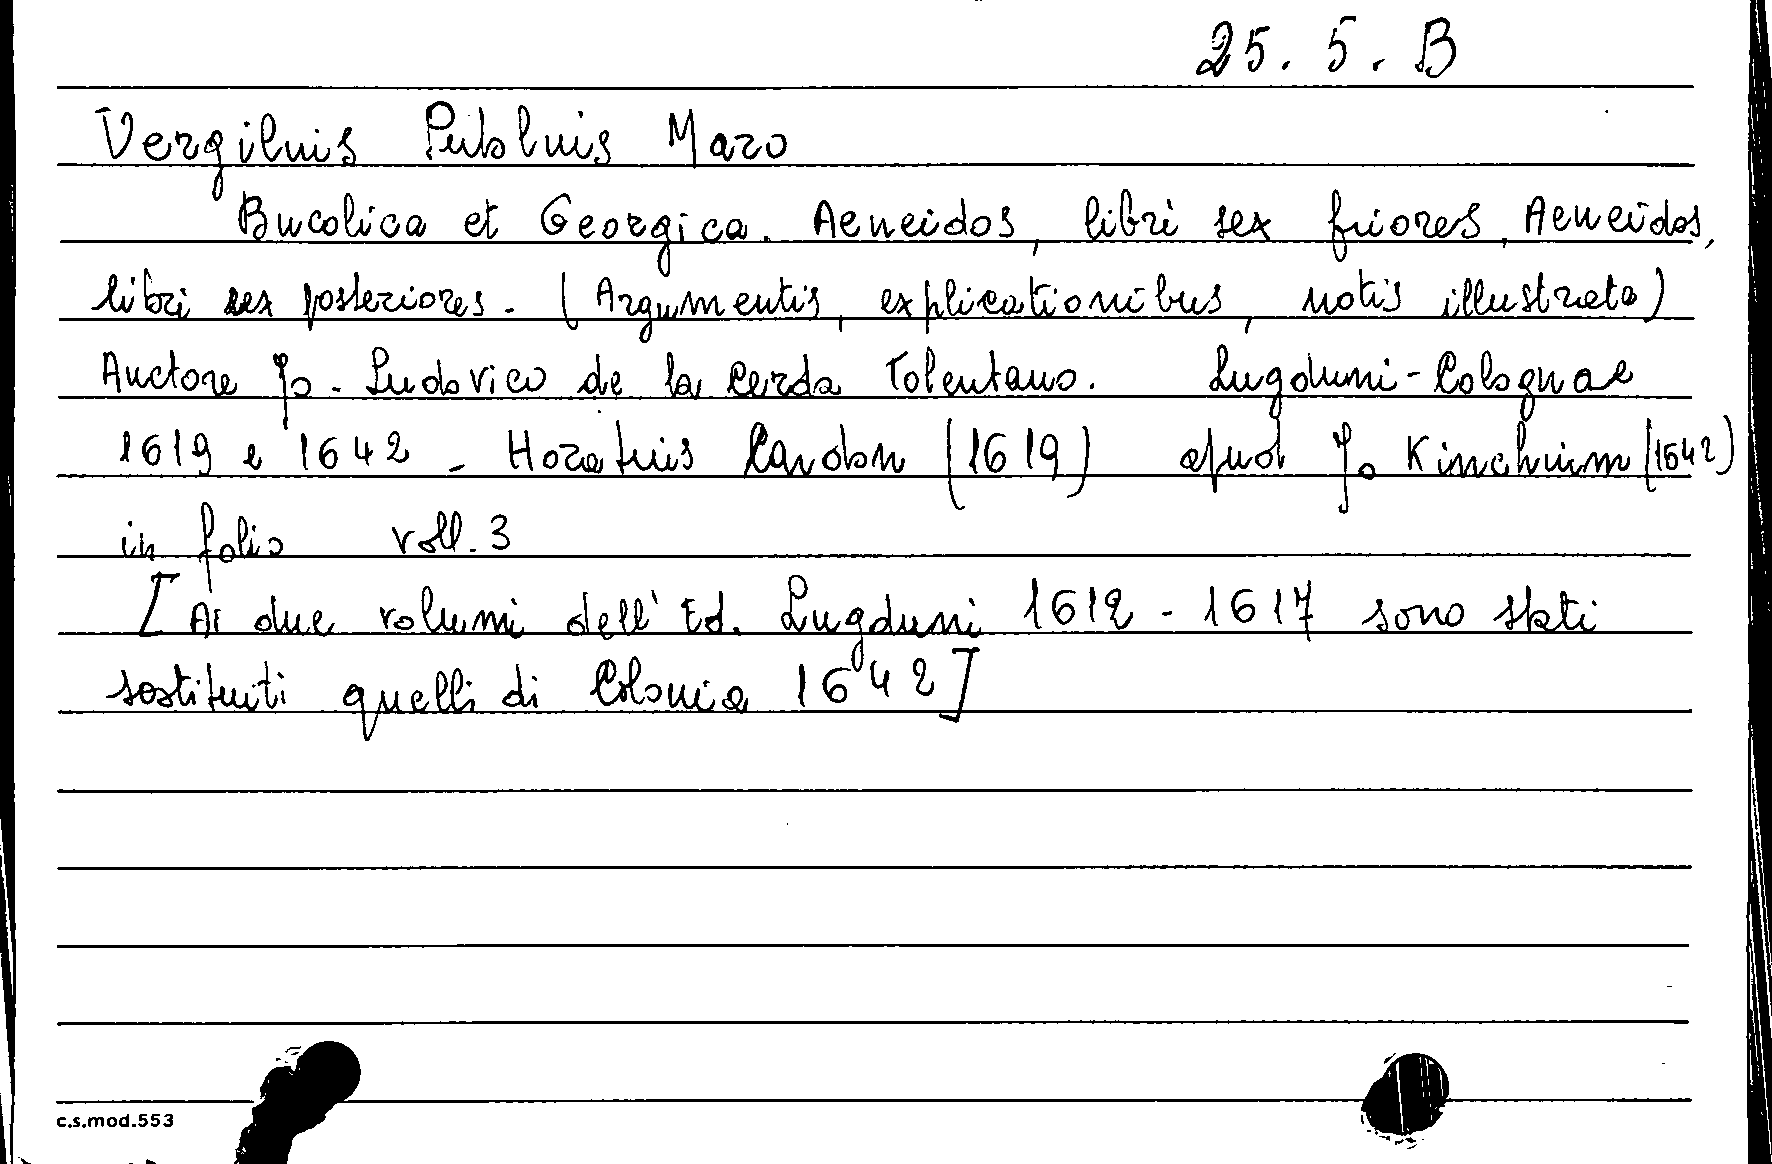 25. 5. B
Vergilius Publius Maro
Bucolica et Georgica. Aeneidos, libri sex priores, Aeneidos,
libri sex posteriores. (Argumentis, explicationibus, notis illustrata)
Auctore Jo. Ludovico de la Cerda Toletano. Lugduni - Colognae
1619 e 1642 - Horatius Cardon (1619) apud Jo Kinchium (1642)
in folio voll. 3
[Ai due volumi dell'Ed. Lugduni 1612 - 1617 sono stati
sostituiti quelli di Colonia 1642]
c.s.mod.553